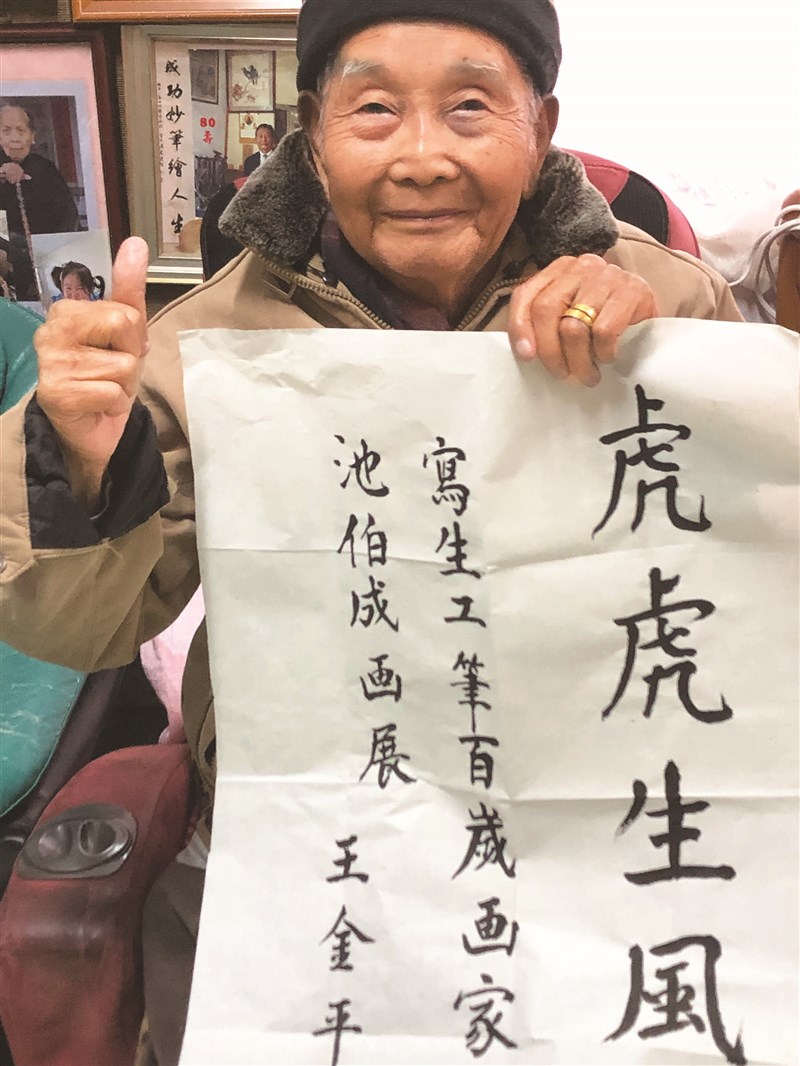 虎虎生風
寫生工筆百歲画家
池伯成画展 王金平
成功妙筆繪人生
80
壽